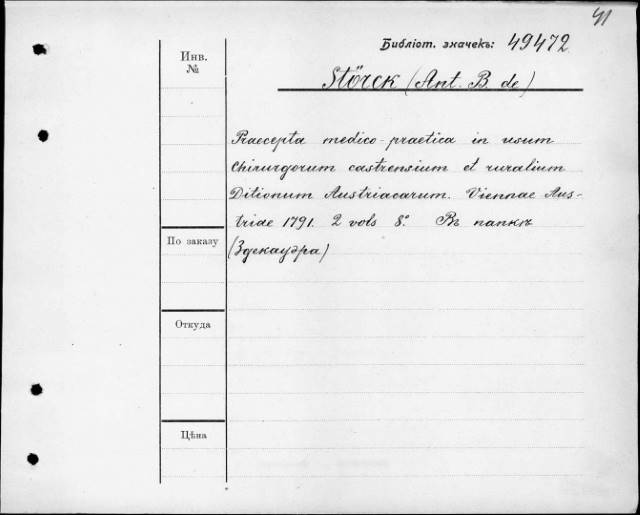 41
Библіот. значекъ: 49472
Инв.
№
Störck (Ant. B. de)
Praecepta medico-practica in usum
Chirurgorum castrensium et ruralium
Ditionum Austriacarum. Viennae Aus-
triae 1791. 2 vols 8.° Въ папкѣ
(Здекауэра)
По заказу
Откуда
Цѣна